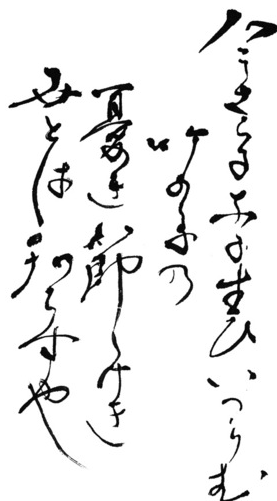 今さらになに生ひいつらむ
竹の子乃
憂き節しけき
世とは知らすや